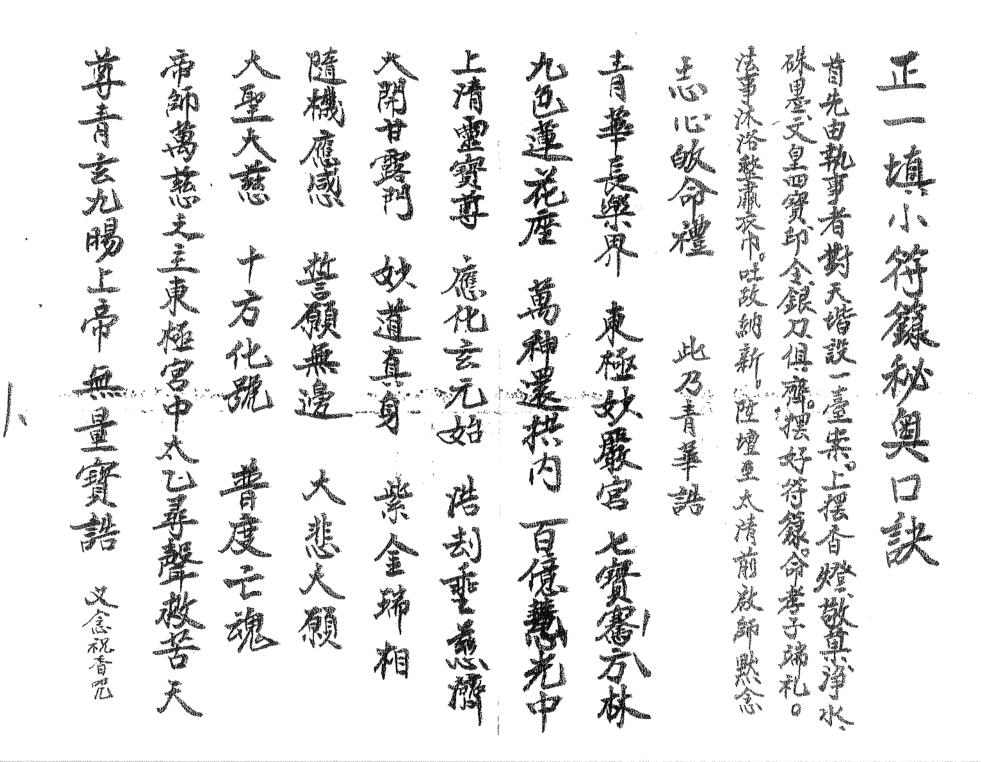 正一填小符籙秘奧口訣
首先由執事者對天堦設一臺案。上擺香燈、敬菓、淨水、
硃墨、文皇四寶、印、金銀刀俱齊。擺好符籙。命孝子端礼。
法事沐浴整肅衣巾。吐故納新。陞壇至太清前啟師默念
志心皈命禮 此乃青華誥
青華長樂界 東極妙嚴宮 七寶騫方林
九色蓮花座 萬神還拱內 百億慧光中
上清靈寶尊 應化玄元始 浩刦垂慈濟
大開甘露門 妙道真身 紫金瑞相
隨機應感 誓願無邊 大悲大願
大聖大慈 十方化號 普度亡魂
帝師萬慈主東極宮中太乙尋聲救苦天
尊青玄九賜上帝無量寶誥 又念祝香咒